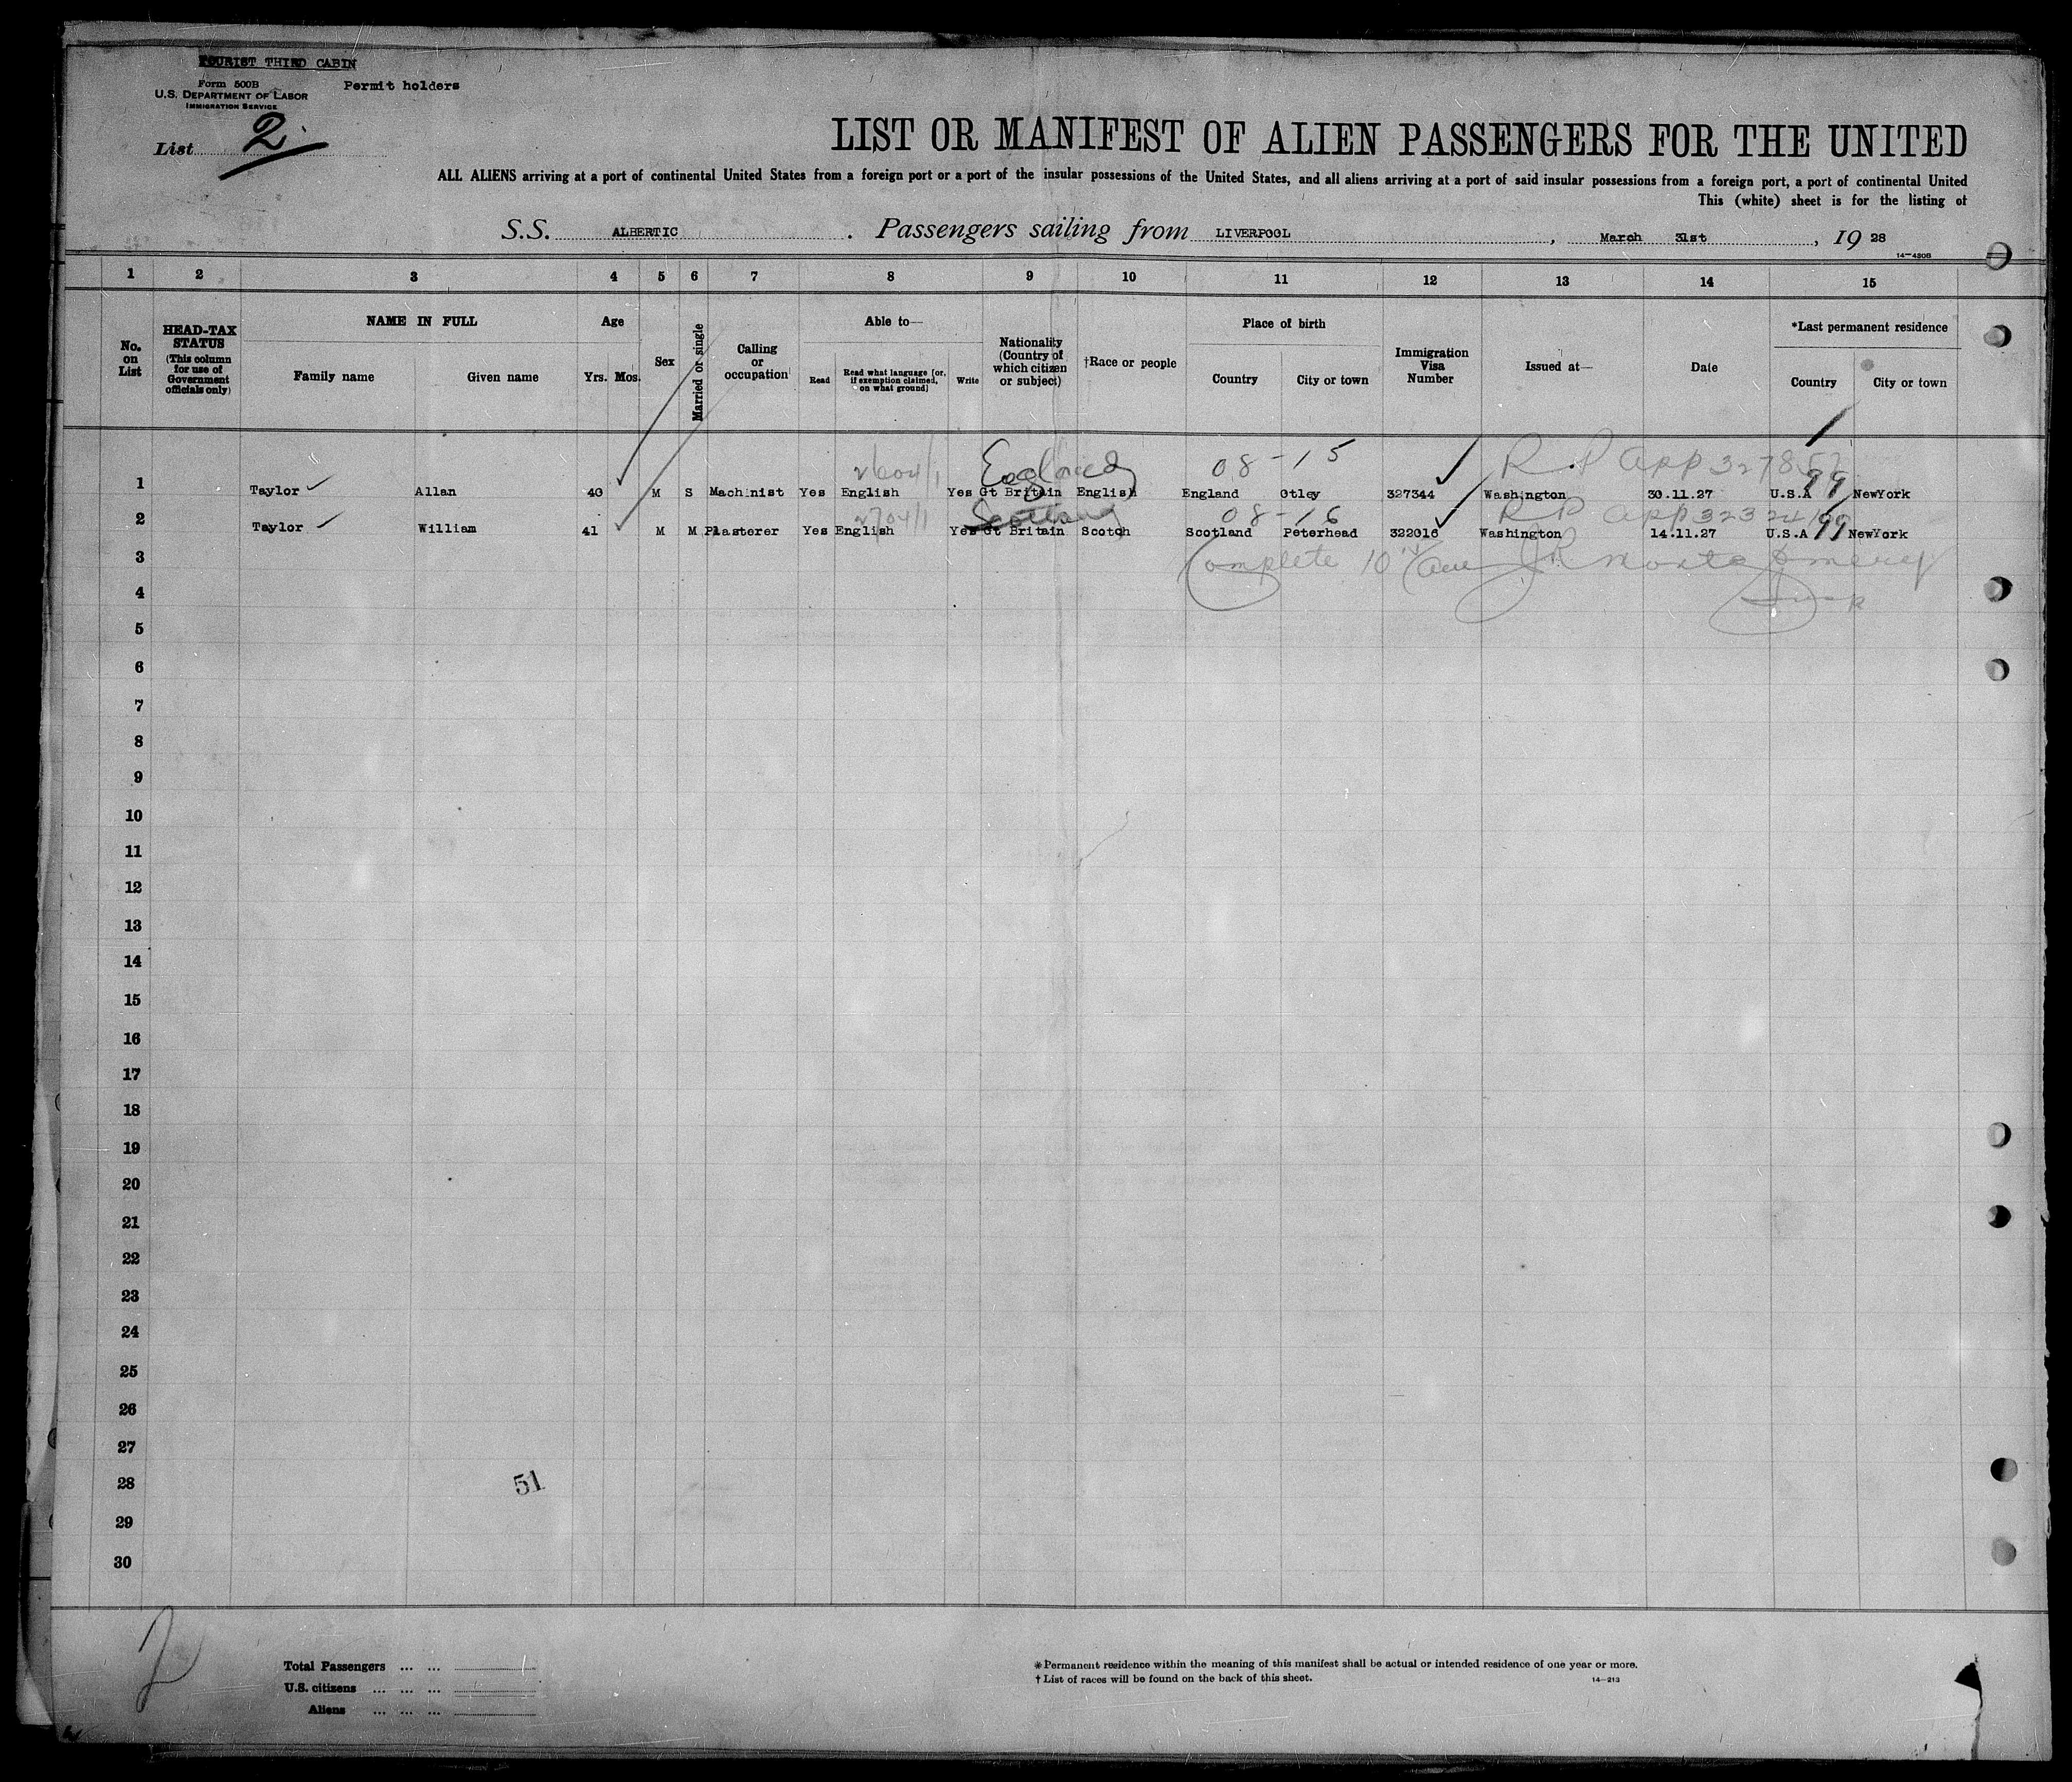 TOURIST THIRD CABIN
Form 500B Permit holders
U.S. DEPARTMENT OF LABOR
IMMIGRATION SERVICE
List 2
LIST OR MANIFEST OF ALIEN PASSENGERS FOR THE UNITED
ALL ALIENS arriving at a port of continental United States from a foreign port or a port of the insular possessions of the United States, and all aliens arriving at a port of said insular possessions from a foreign port, a port of continental United
This (white) sheet is for the listing of
S.S. ALBERTIC . Passengers sailing from LIVERPOOL , March 31st , 19 28
14-4306
1 2 3 4 5 6 7 8 9 10 11 12 13 14 15
No. on List
HEAD-TAX STATUS (This column for use of Government officials only)
NAME IN FULL
Family name Given name
Age
Yrs. Mos.
Sex
Married or single
Calling or occupation
Able to—
Read Read what language [or, if exemption claimed, on what ground] Write
Nationality (Country of which citizen or subject)
†Race or people
Place of birth
Country City or town
Immigration Visa Number
Issued at—
Date
*Last permanent residence
Country City or town
England 08-15 R.P app
1 Taylor Allan 40 M S Machinist Yes English Yes Gt Britain English England Otley 327344 Washington 30.11.27 U.S.A 99 NewYork
Scotland 08-16 R P app
2 Taylor William 41 M M Plasterer Yes English Yes Gt Britain Scotch Scotland Peterhead 322016 Washington 14.11.27 U.S.A 99 NewYork
3 Complete 10 JR Montgomery
4
5
6
7
8
9
10
11
12
13
14
15
16
17
18
19
20
21
22
23
24
25
26
27
28 51
29
30
2
Total Passengers ... ...
U.S. citizens ... ... ...
Aliens ... ... ...
* Permanent residence within the meaning of this manifest shall be actual or intended residence of one year or more.
† List of races will be found on the back of this sheet. 14-213